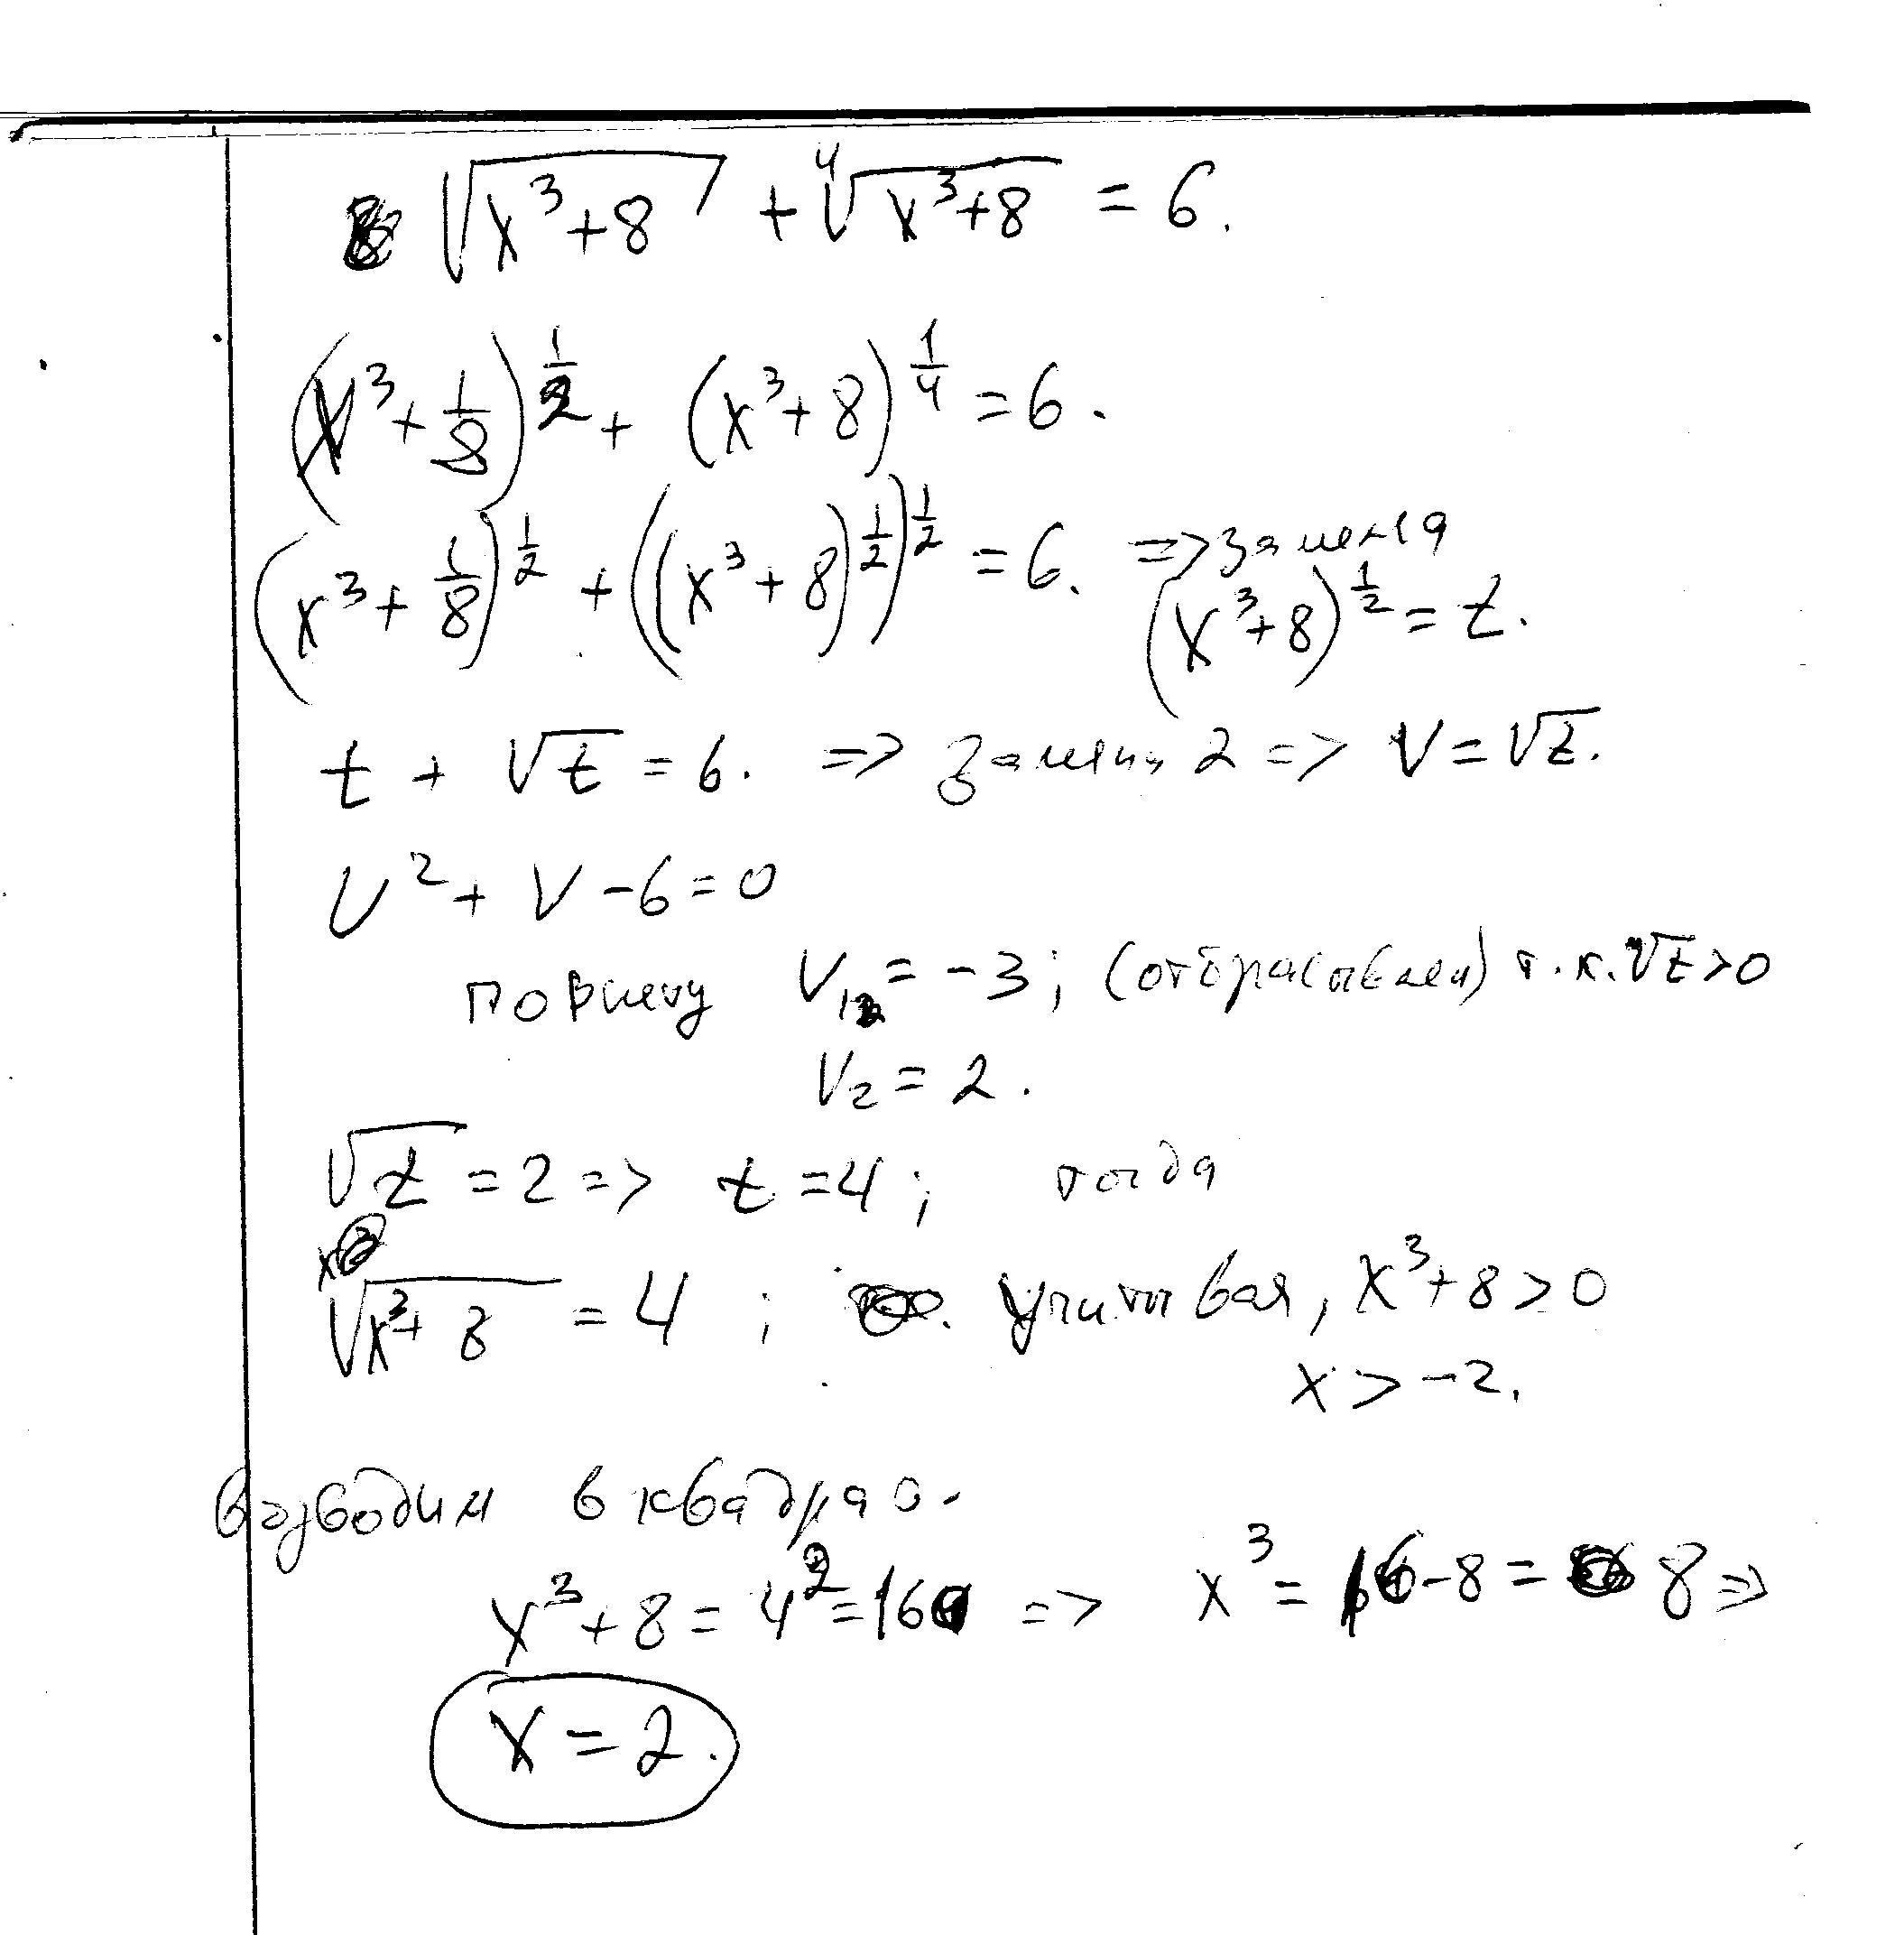 √(x³+8) + ⁴√(x³+8) = 6.
(x³ + 1/8)^(1/2) + (x³+8)^(1/4) = 6.
(x³ + 1/8)^(1/2) + ((x³+8)^(1/2))^(1/2) = 6. => замена
(x³+8)^(1/2) = t.
t + √t = 6. => замена 2 => V = √t.
V² + V - 6 = 0
по Виету V₁ = -3; (отбрасываем) т.к. √t > 0
V₂ = 2.
√t = 2 => t = 4; тогда
√(x³+8) = 4; учитывая, x³+8 > 0
x > -2.
возводим в квадрат
x³+8 = 4² = 16 => x³ = 16-8 = 8 =>
x = 2.